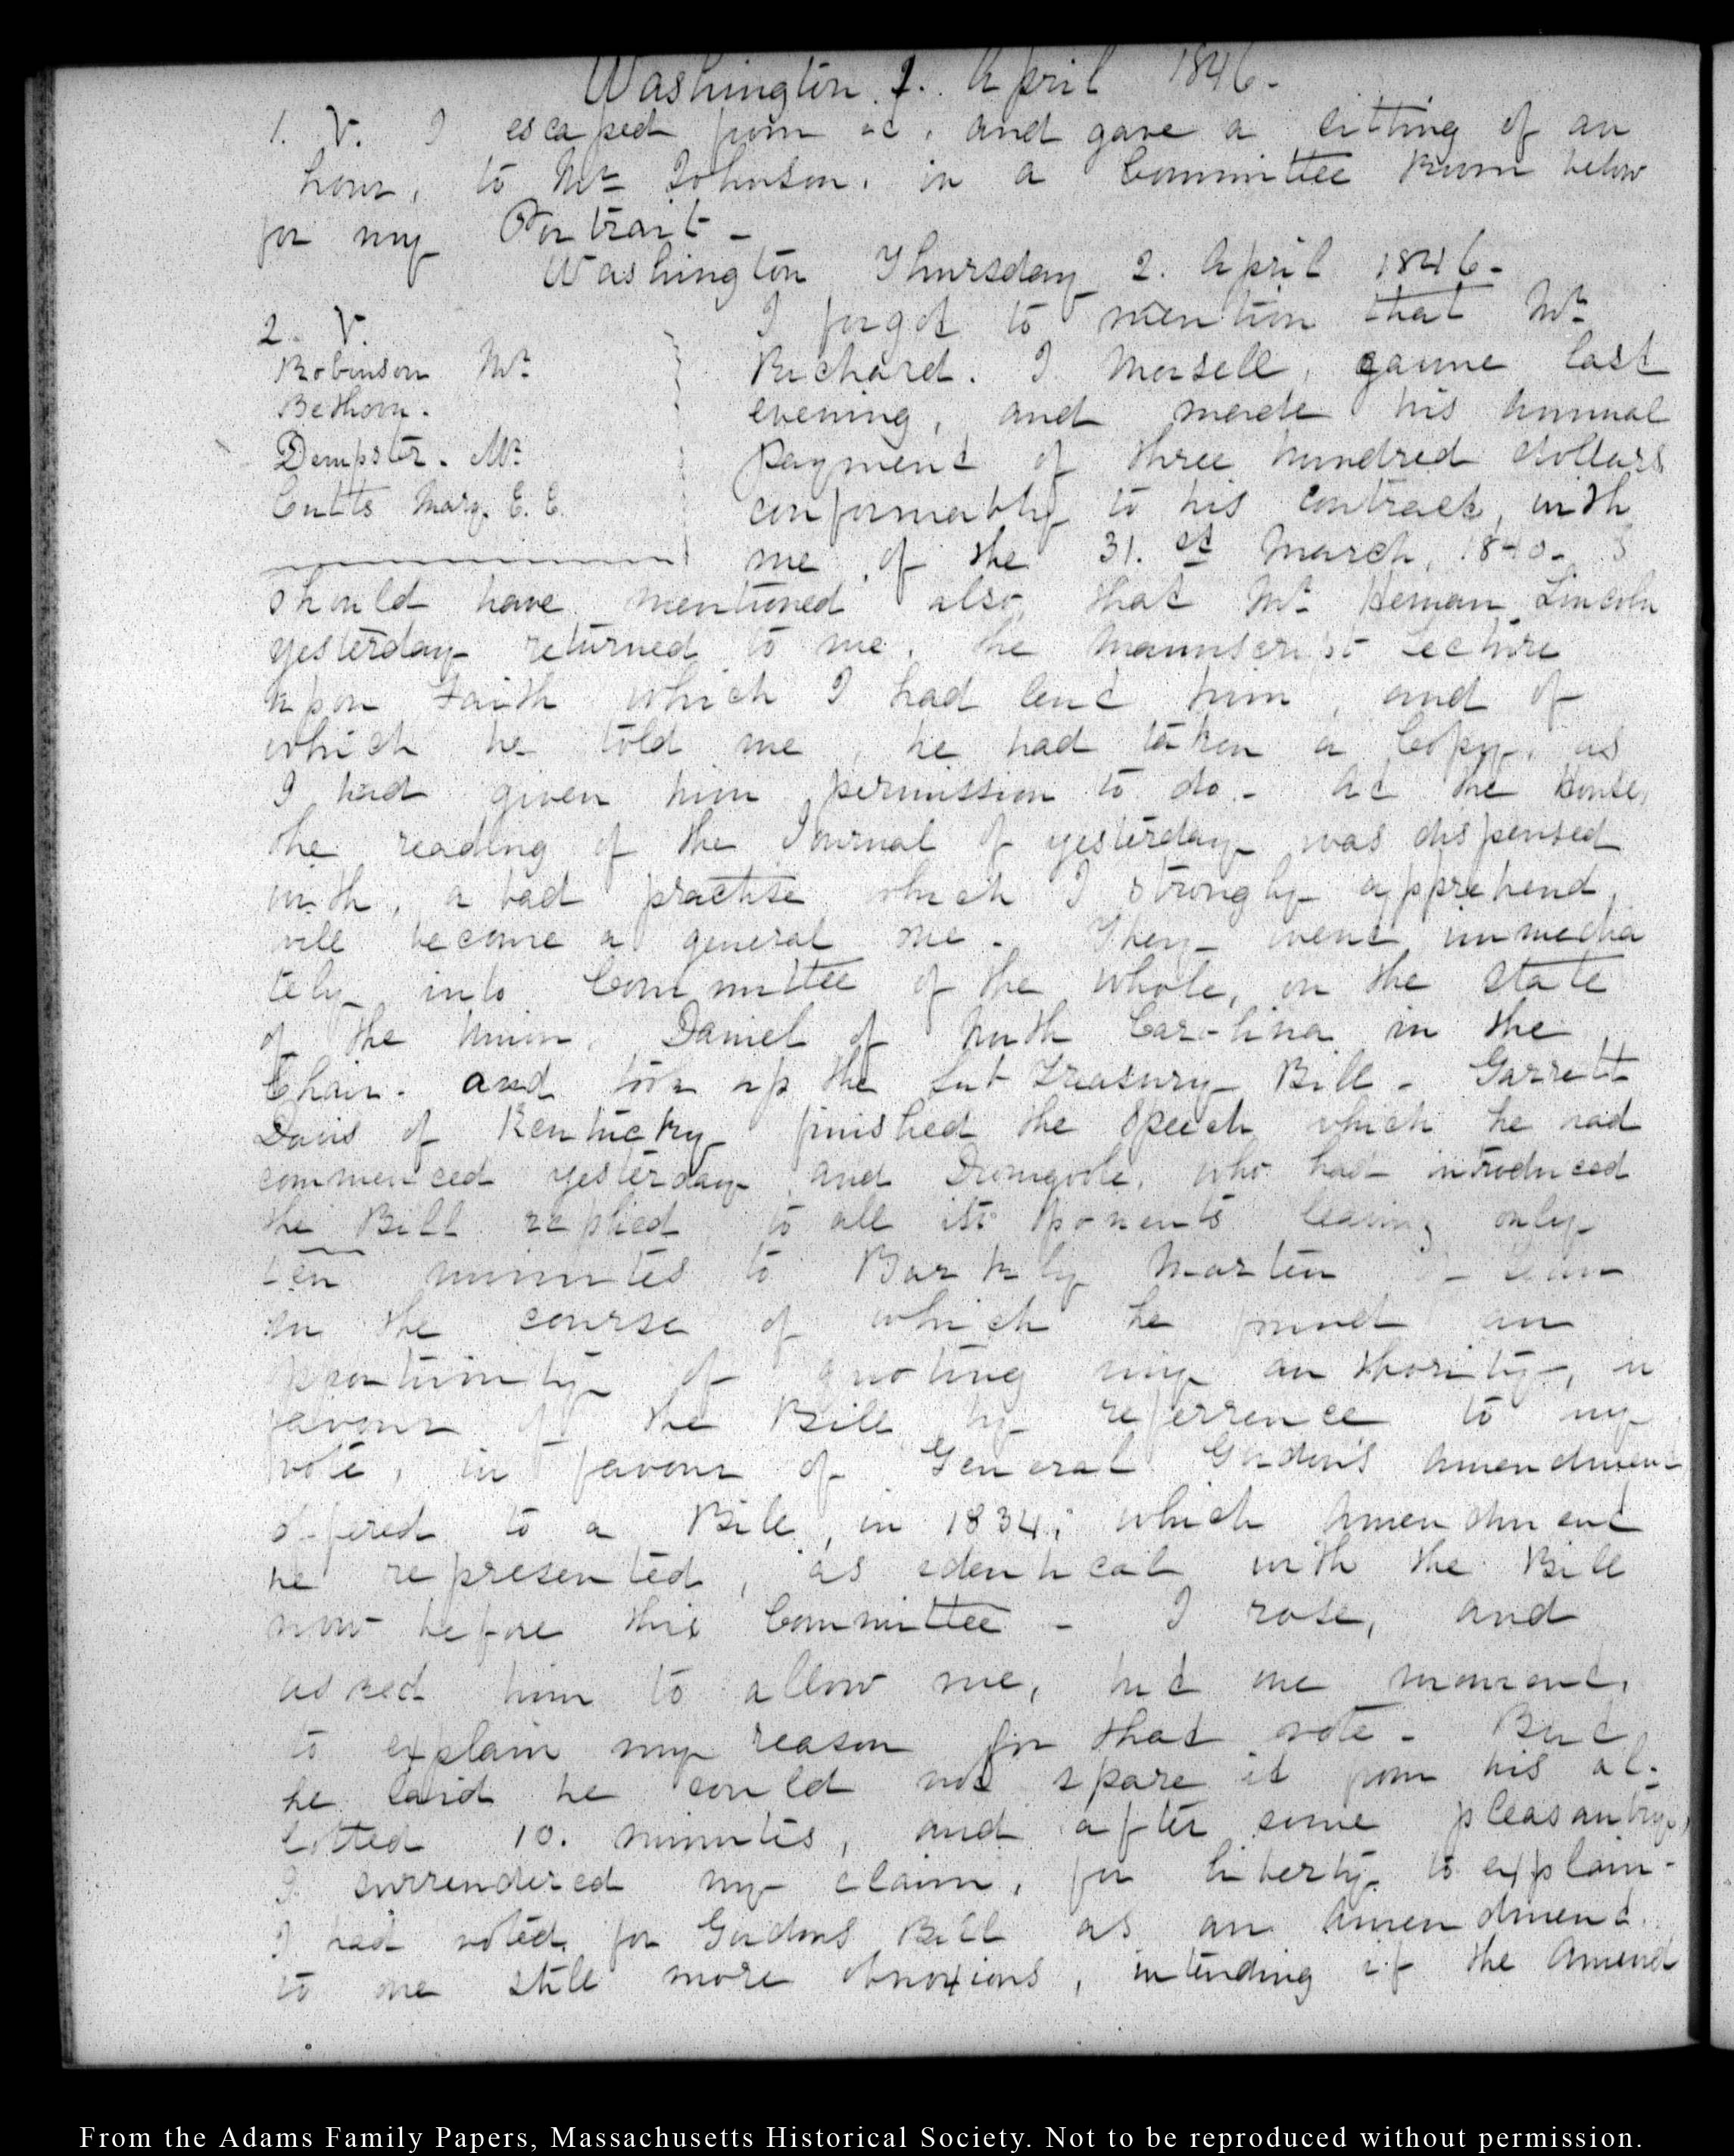 Washington 2. April 1846-
1. V. I escaped from it, and gave a sitting of an
hour, to Mr Johnson, in a Committee Room below
for my Portrait-
Washington Thursday 2. April 1846-
2. V.
Robinson Mr
Bethorn.
Dempster. Mr
Cutts Mary. E. E.
I forgot to mention that Mr
Richard. I. Morsell, came last
evening, and made his annual
payment of three hundred dollars
conformably to his contract, with
me of the 31.st March, 1840- I
should have mentioned also, that Mr Heman Lincoln
yesterday returned to me, the manuscript Lecture
upon Faith which I had lent him, and of
which he told me, he had taken a Copy, as
I had given him permission to do- At the House,
the reading of the Journal of yesterday was dispensed
with, a bad practise which I strongly apprehend,
will become a general one- They went immedia
tely into Committee of the whole, on the State
of the Union, Daniel of North Carolina in the
Chair. and took up the Sub Treasury Bill- Garrett
Davis of Kentucky finished the Speech which he had
commenced yesterday and Dromgoole, who had introduced
the Bill replied to all its ponents leaving only
ten minutes to Barkly Marten
in the course of which he found an
opportunity of quoting my authority, in
favour of the Bill by referrence to my
vote, in favour of General Gordon's Amendment
offered to a Bill, in 1834; which Amendment
he represented, as identical with the Bill
now before this Committee- I rose, and
asked him to allow me, but one moment,
to explain my reason for that vote- But
he said he could not spare it from his al-
lotted 10. minutes, and after some pleasantry,
I surrendered my claim, for liberty to explain-
I had voted for Gordons Bill as an Amendment.
to one still more obnoxious, intending if the Amend
From the Adams Family Papers, Massachusetts Historical Society. Not to be reproduced without permission.